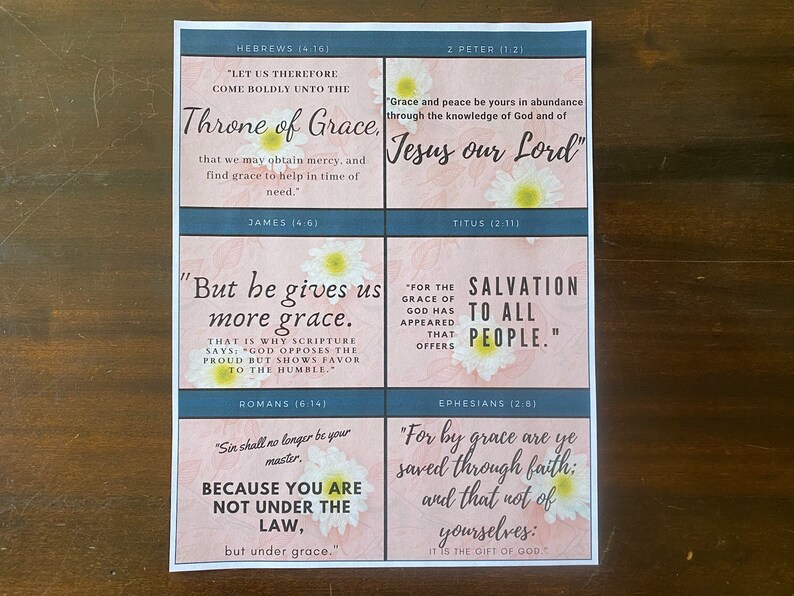 HEBREWS (4:16)
"LET US THEREFORE
COME BOLDLY UNTO THE
Throne of Grace,
that we may obtain mercy, and
find grace to help in time of
need."
2 PETER (1:2)
"Grace and peace be yours in abundance
through the knowledge of God and of
Jesus our Lord"
JAMES (4:6)
"But he gives us
more grace.
THAT IS WHY SCRIPTURE
SAYS: "GOD OPPOSES THE
PROUD BUT SHOWS FAVOR
TO THE HUMBLE."
TITUS (2:11)
"FOR THE
GRACE OF
GOD HAS
APPEARED
THAT
OFFERS
SALVATION
TO ALL
PEOPLE."
ROMANS (6:14)
"Sin shall no longer be your
master,
BECAUSE YOU ARE
NOT UNDER THE
LAW,
but under grace."
EPHESIANS (2:8)
"For by grace are ye
saved through faith;
and that not of
yourselves:
IT IS THE GIFT OF GOD."